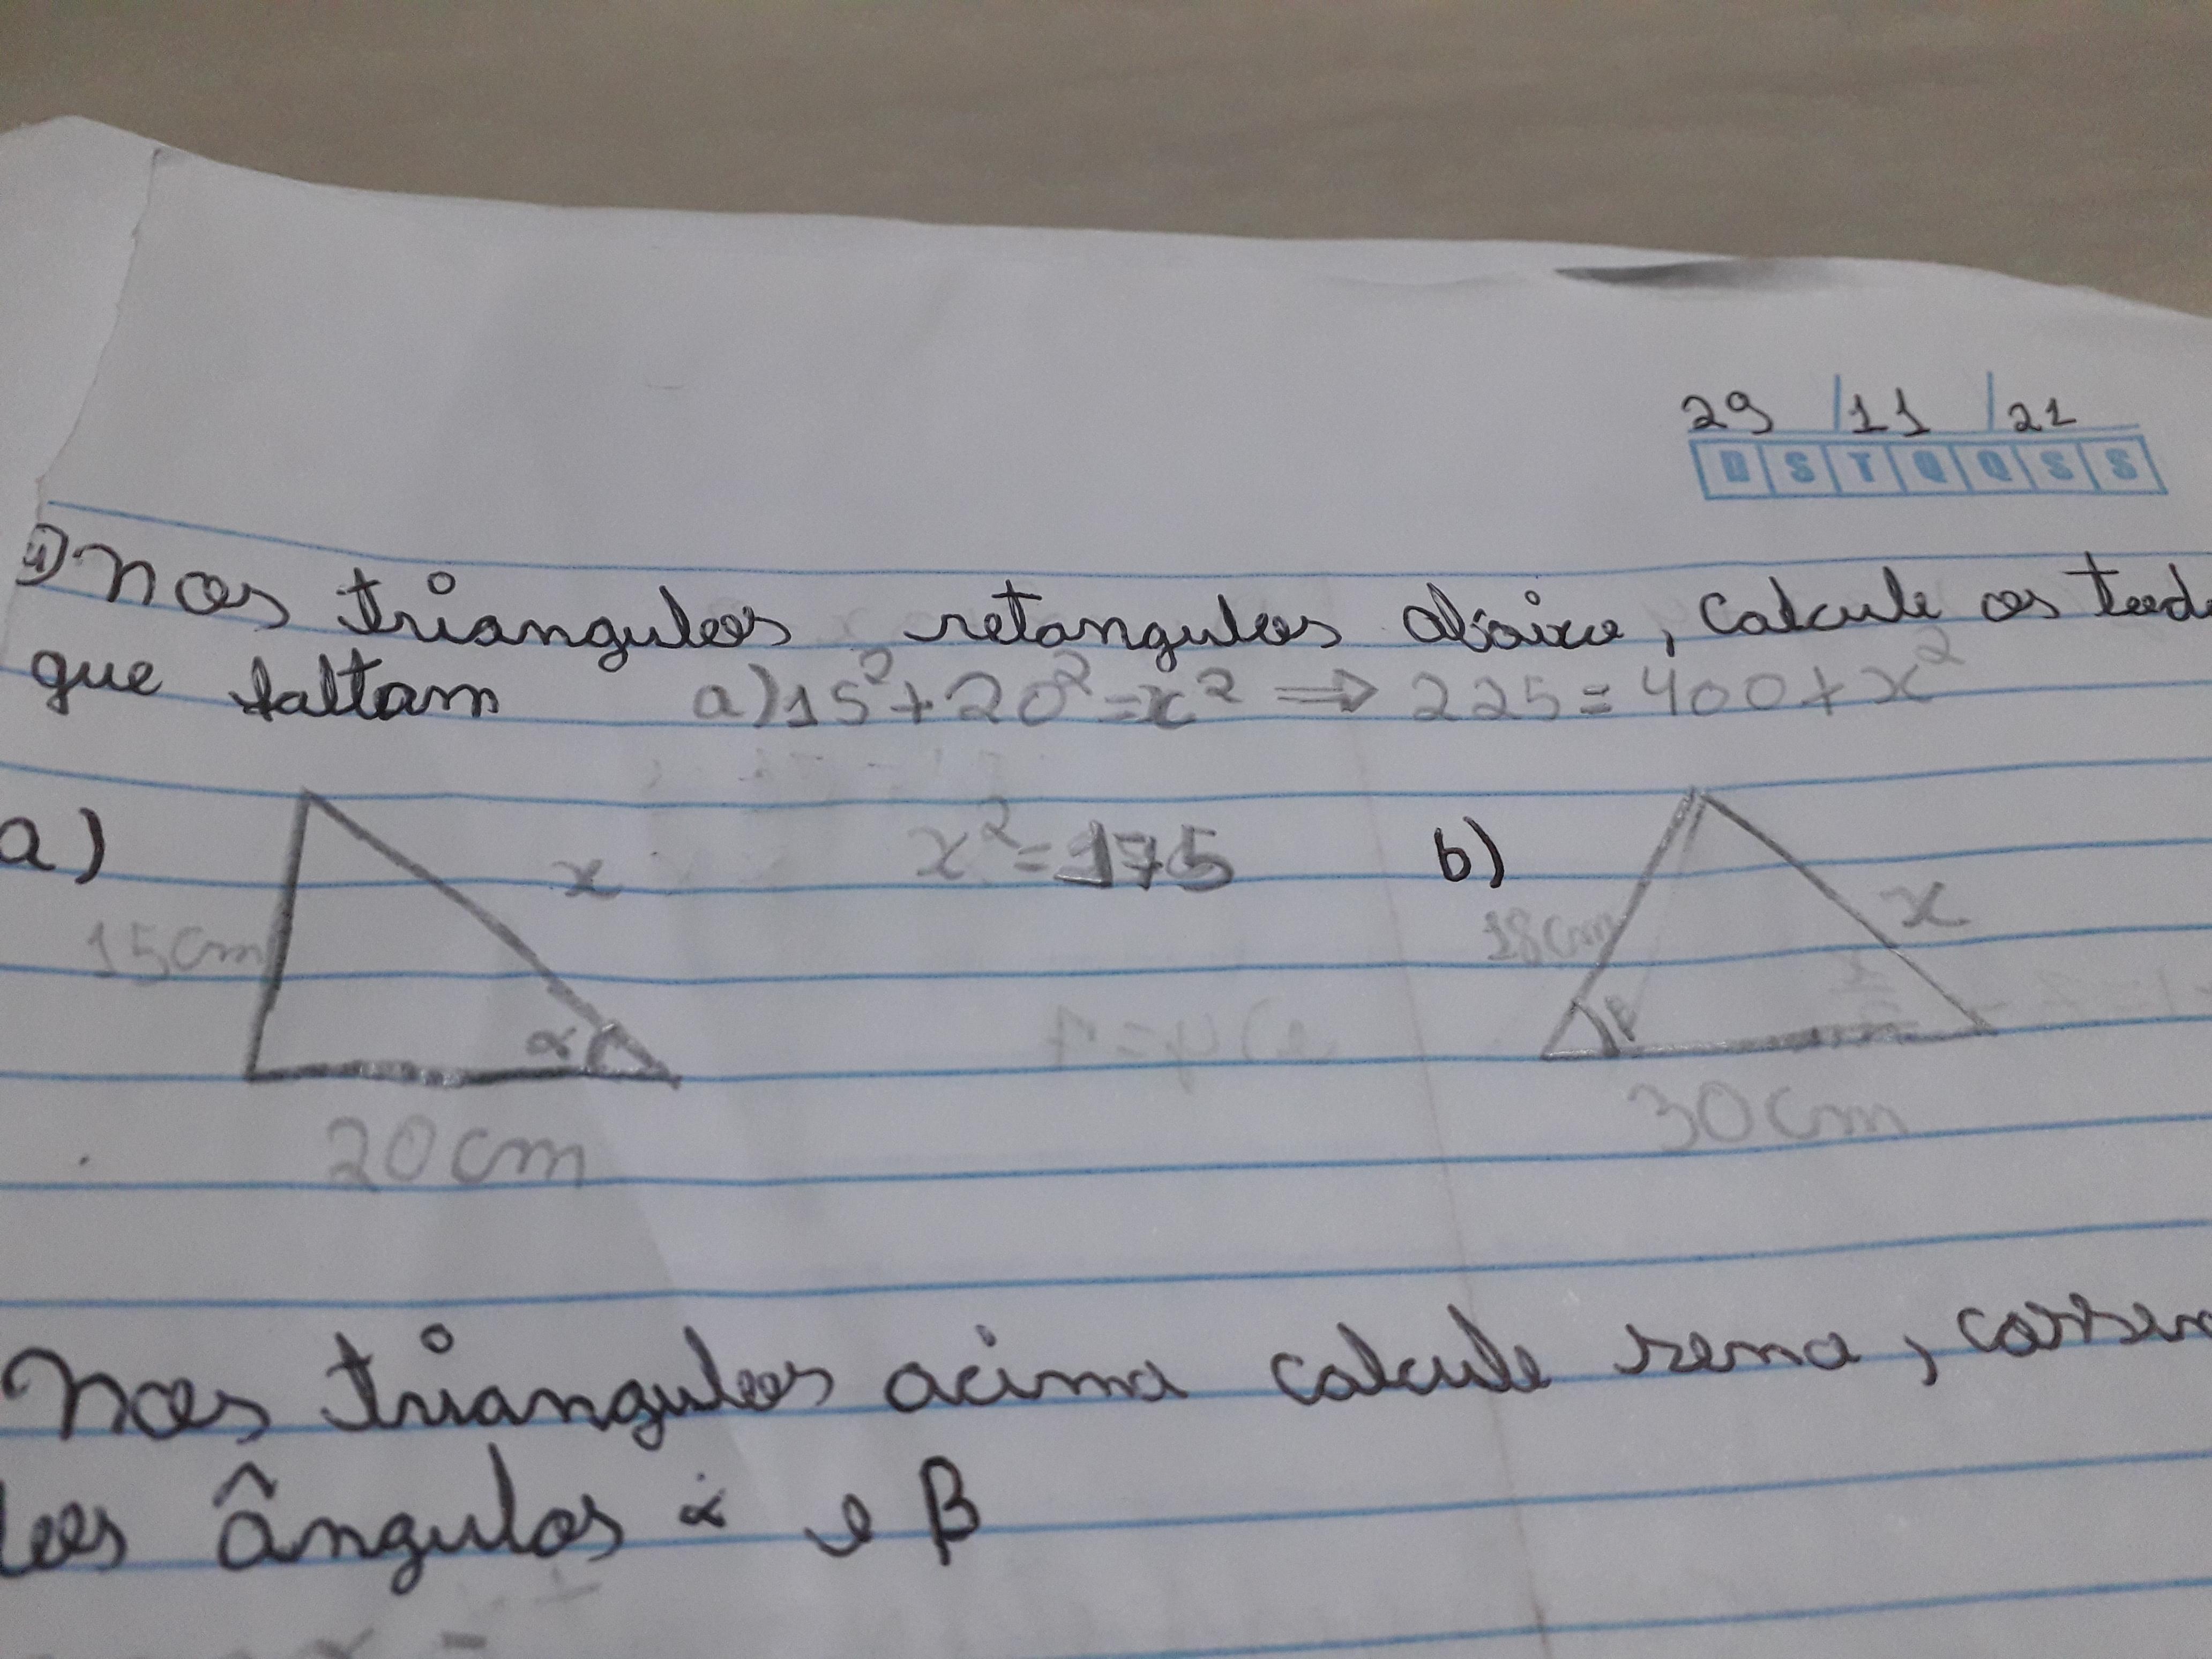 29 / 11 / 21
D S T Q Q S S
1) Nos triangulos retangulos abaixo, calcule os
que faltam a) 15² + 20² = x² ⇒ 225 = 400 + x²
a) x x² = 175 b)
15cm 18cm x
α β
20cm 30cm
Nos triangulos acima calcule seno,
los ângulos α e β